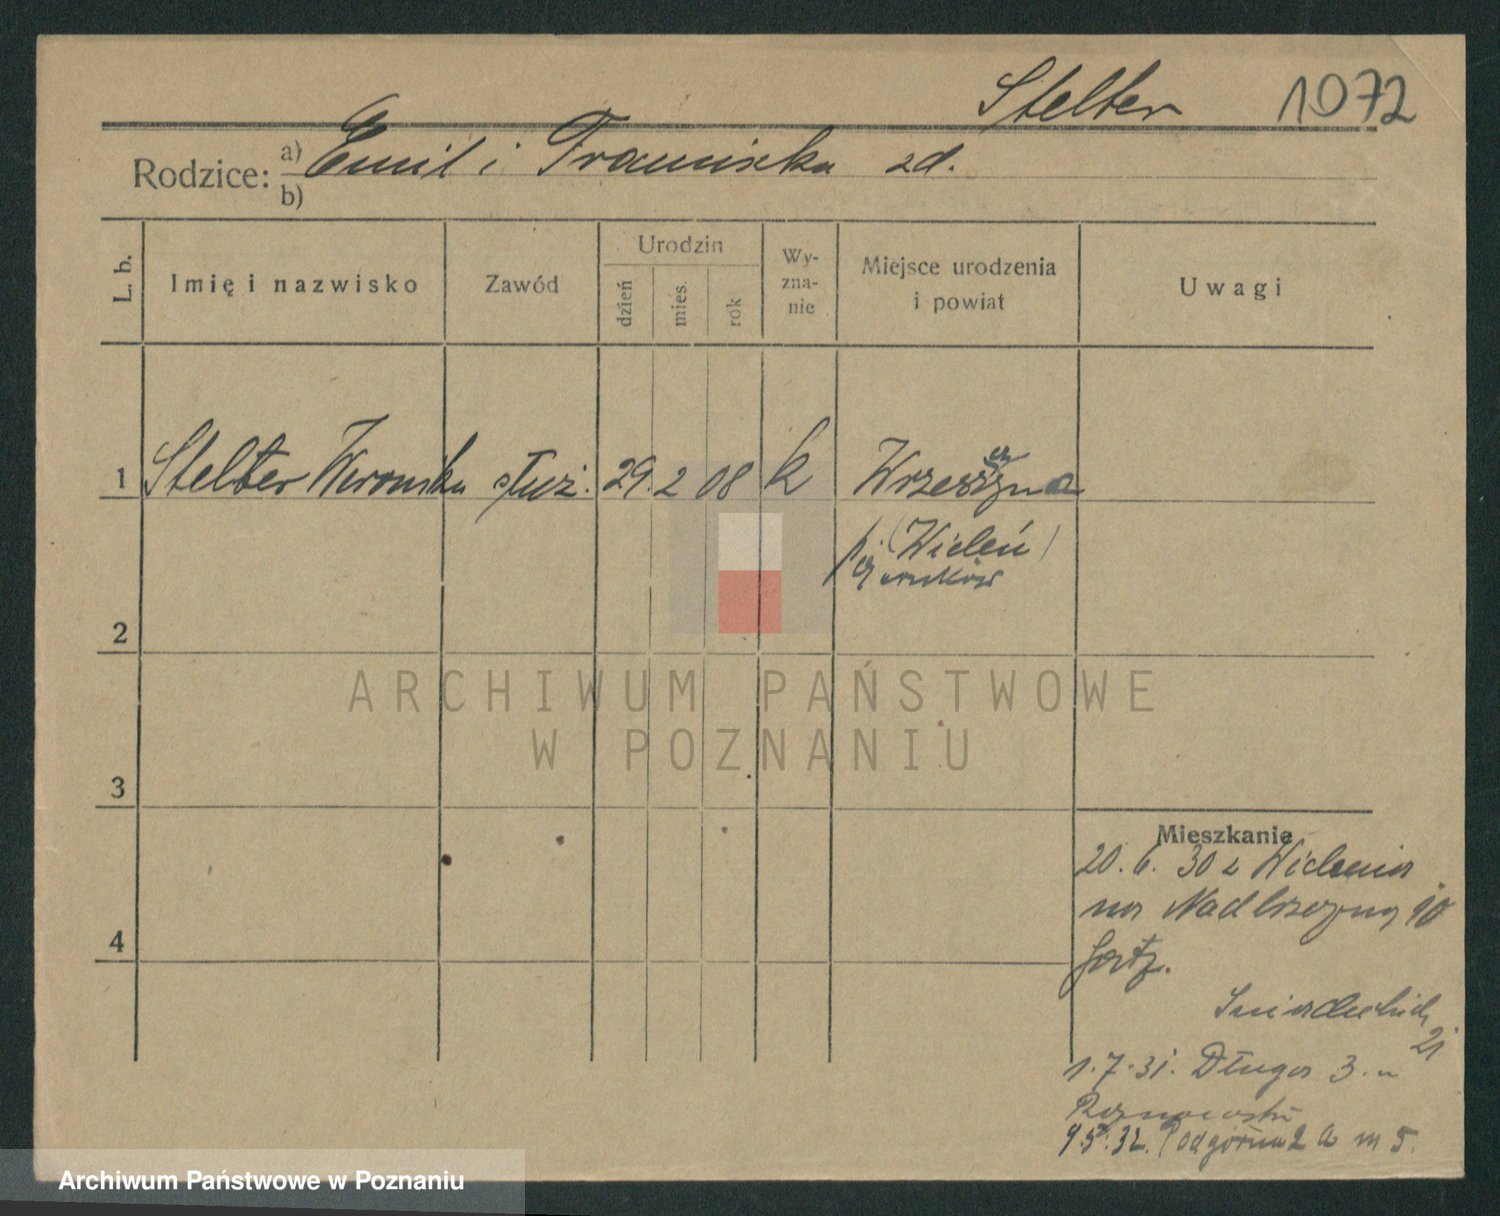 Stelter 1072
Rodzice: a) Emil i Franciszka zd.
b)
L. b.
Imię i nazwisko
Zawód
Urodzin
dzień
mies.
rok
Wy-
zna-
nie
Miejsce urodzenia
i powiat
Uwagi
1 Stelter Weronika służ. 29. 2 08 k
p. (Wieleń)
Czarnków
2
3
4
ARCHIWUM PAŃSTWOWE
W POZNANIU
Mieszkanie
20. 6. 30 z Wielenia
na Nadbrzeżną 10
Śniadeckich
21
1. 7. 31. Długa 3.
9.5.32. Podgórna 2 a m 5.
Archiwum Państwowe w Poznaniu